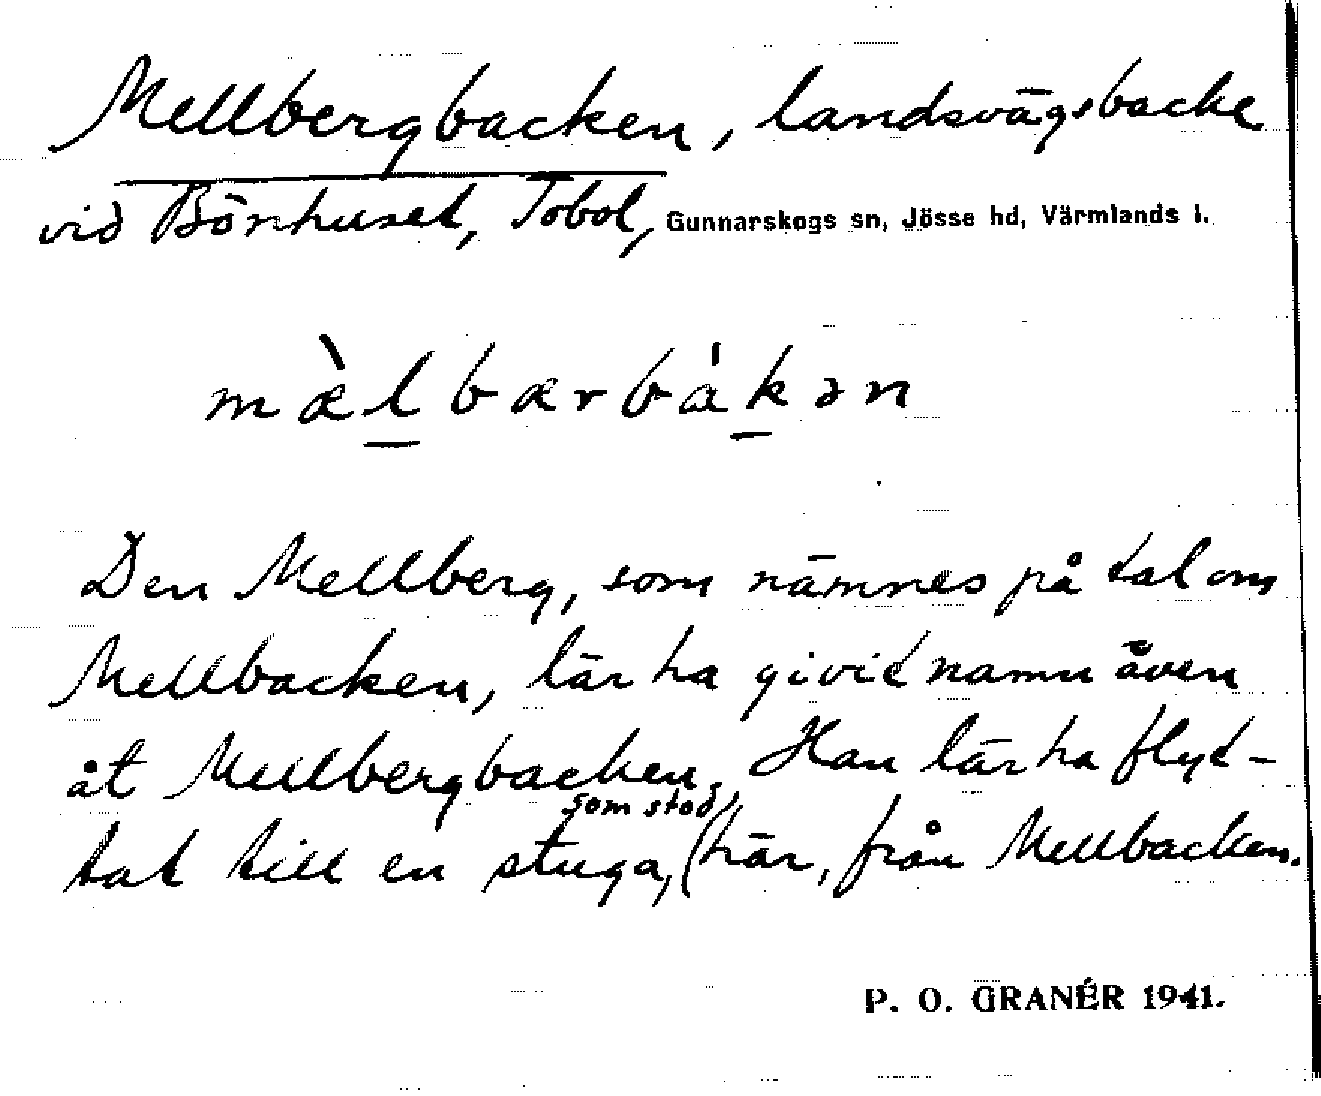 Mellbergbacken, landsvägsbacke
vid Bönhuset, Tobol, Gunnarskogs sn, Jösse hd, Värmlands l.
mæ̀l̲bærbák̲ən
Den Mellberg, som nämnes på tal om
Mellbacken, lär ha givit namn även
åt Mellbergbacken. Han lär ha flyt-
tat till en stuga, som stod här, från Mellbacken.
P. O. GRANÉR 1941.